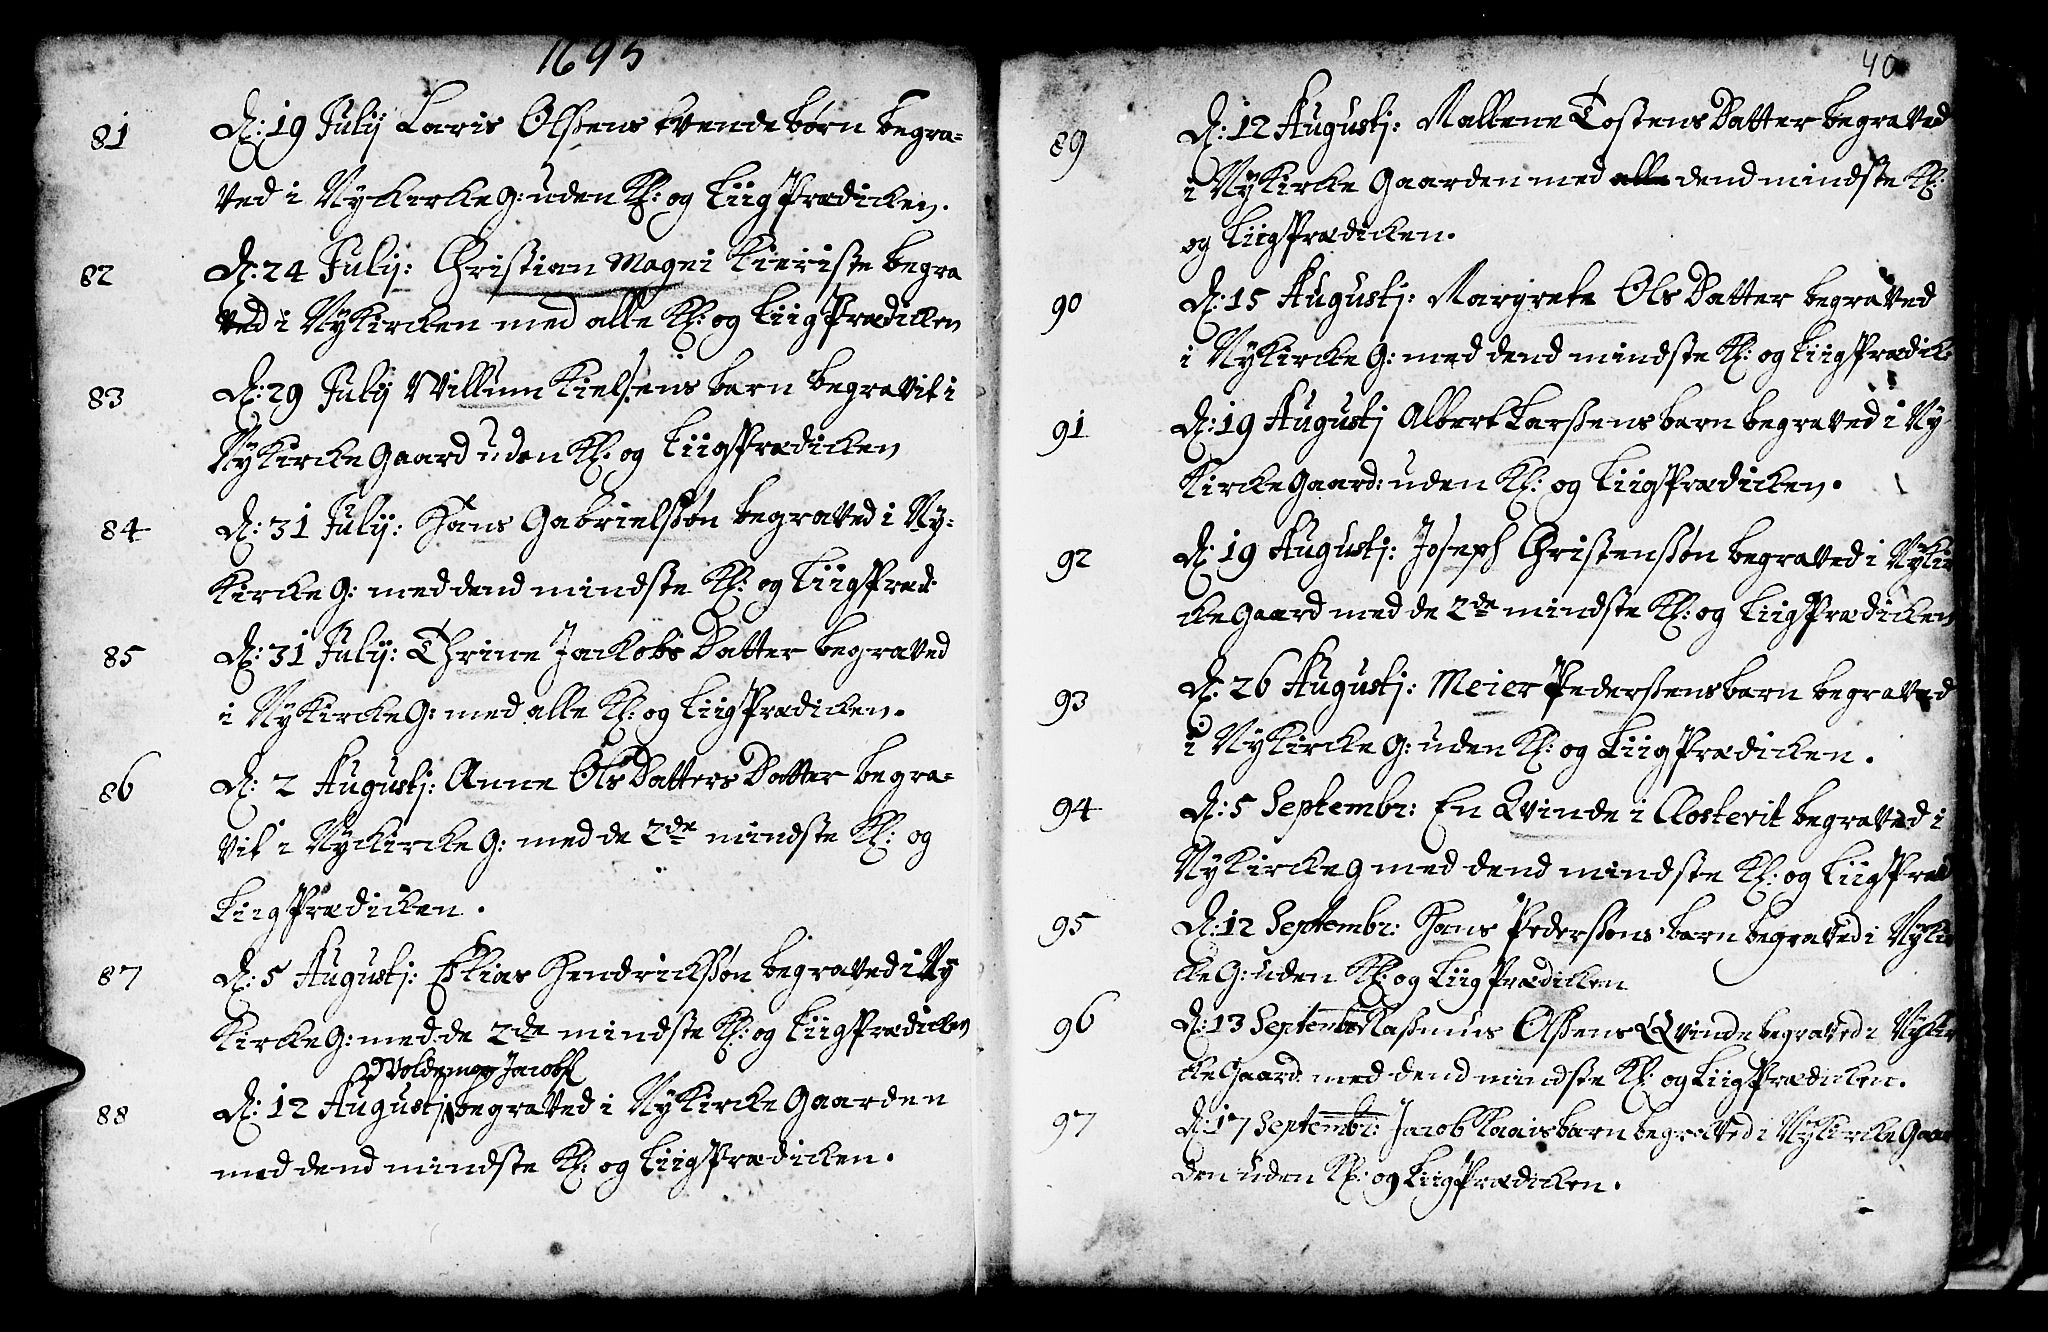 1695
81 D: 19 July Laris Olssens tvende børn begra=
ved i Nykirke G: uden Kl: og Liigprædicken.
82 D: 24 July: Christian Magni Kieriste begra
ved i Nykircken med alle Kl: og Liigprædicken
83 D: 29 July Willum Kielsens barn begravit i
Nykircke Gaard uden Kl: og Liigprædicken
84 D: 31 July: Hans Gabrielssøn begraved i Ny=
kircke G: med dend mindste Kl: og Liigpræd:
85 D: 31 July: Thrine Jackobs Datter begraved
i Nykircke G: med alle Kl: og Liigprædicken.
86 D: 2 Augustj: Anne Ols Datters Datter begra=
vit i Nykircke G: med de 2de mindste Kl: og
Liigprædicken.
87 D: 5 Augustj: Elias Hendrickssøn begraved i Ny
kircke G: med de 2de mindste Kl: og Liigprædicken
Woldemar Jacobs
88 D: 12 Augustj begraved i Nykircke Gaarden
med dend mindste Kl: og Liigprædicken.
40
89 D: 12 Augustj: Mallene Tostens Datter begraved
i Nykircke Gaarden med alle dend mindste Kl:
og Liigprædicken.
90 D: 15 Augustj: Margrete Ols Datter begraved
i Nykircke G: med dend mindste Kl: og Liigprædick:
91 D: 19 Augustj Albert Larssens barn begraved i Ny
kircke Gaard: uden Kl: og Liigprædicken.
92 D: 19 Augustj: Joseph Christenssøn begraved i Nykir
cke Gaard med de 2de mindste Kl: og Liigprædicken
93 D: 26 Augustj: Meier Pederssens barn begraved
i Nykircke G: uden Kl: og Liigprædicken.
94 D: 5 Septembr: En Qvinde i Closterit begraved i
Nykircke G med dend mindste Kl: og Liigpræd
95 D: 12 Septembr: Hans Pederssøns barn begraved i Nykir
cke G: uden Kl: og Liigprædicken
96 D: 13 Septembr Rasmus Olssens Qvinde begraved i Nykir
cke Gaard med dend mindste Kl: og Liigprædicken.
97 D: 17 Septembr: Jacob Kaais barn begraved i Nykircke Gaar
den uden Kl: og Liigprædicken.